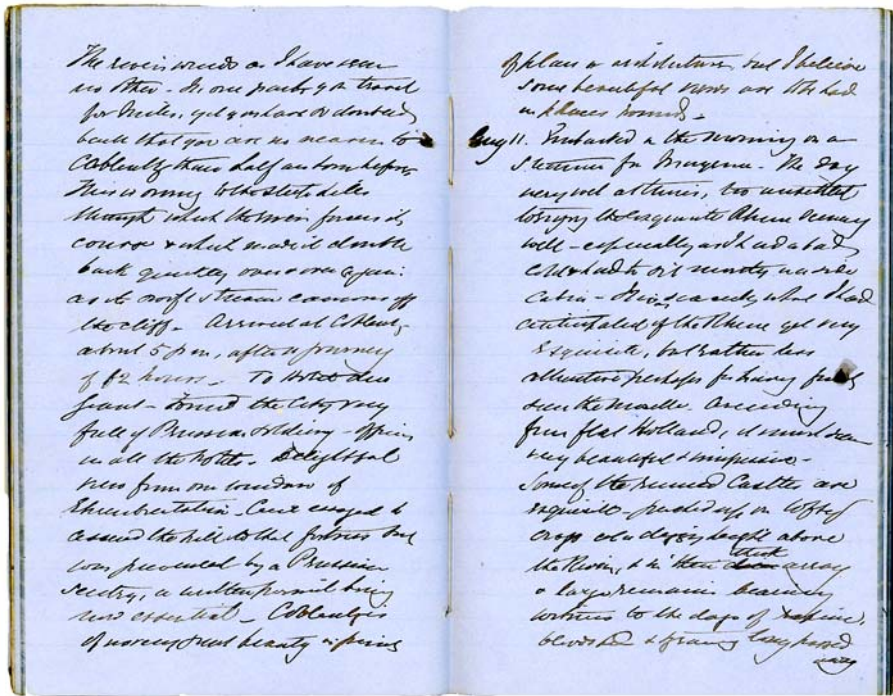 The river winds as I have seen
no other - In one part you travel
for miles, yet you have so doubled
back that you are no nearer to
Coblentz than half an hour before
This is owing to the steep hills
through which the river forces its
course & which make it double
back quietly over & over again:
as its swift stream cannons off
the cliff - Arrived at Coblentz
about 5 pm, after a journey
of 82 hours - To Hotel du
Geant - Found the City very
full of Prussian soldiery - officers
in all the hotels - Delightful
view from our window of
Ehrenbreitstein - Cruse essayed to
ascend the hill to that fortress but
was prevented by a Prussian
sentry, a written permit being
now essential - Coblentz is
of no very great beauty
of plan or architecture, but I believe
some beautiful views are to be had
in places round -
Aug 11. Embarked in the morning on a
steamer for Mayence - The day
very wet at times, too unsettled
to enjoy the exquisite Rhine scenery
well - especially as I had a bad
cold & had to sit mostly inside
cabin - It is scarcely what I had
anticipated of the Rhine yet very
exquisite, but rather less
attractive perhaps for having first
seen the Moselle. Ascending
from flat Holland, it must seem
very beautiful & impressive -
Some of the ruined Castles are
exquisite - perched up on lofty
crags at a dizzy height above
the River, & in their thick array
& large remains bearing
witness to the days of rapine,
bloodshed & tyranny long passed
away